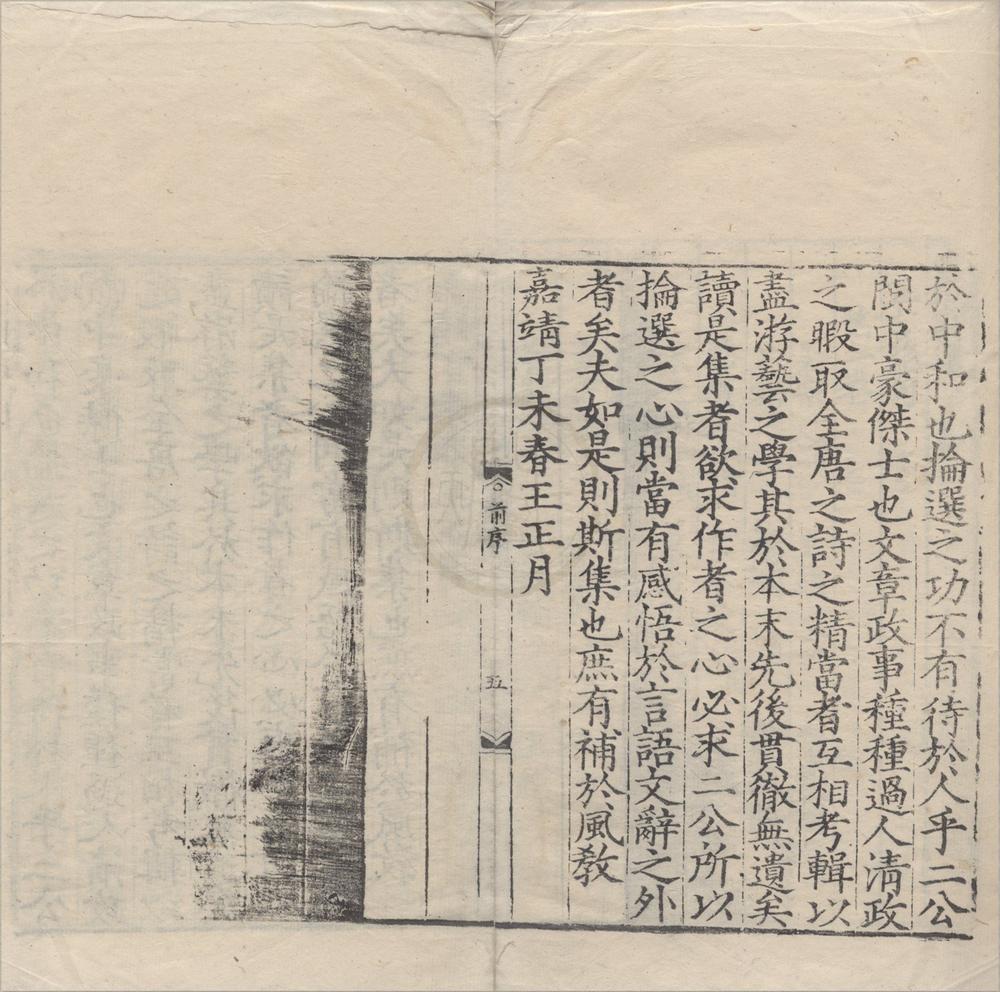 於中和也掄選之功不有待於人乎二公
閩中豪傑士也文章政事種種過人淸政
之暇取全唐之詩之精當者互相考輯以
盡游藝之學其於本末先後貫徹無遺矣
讀是集者欲求作者之心必求二公所以
掄選之心則當有感悟於言語文辭之外
者矣夫如是則斯集也庶有補於風敎
嘉靖丁未春王正月
前序
五